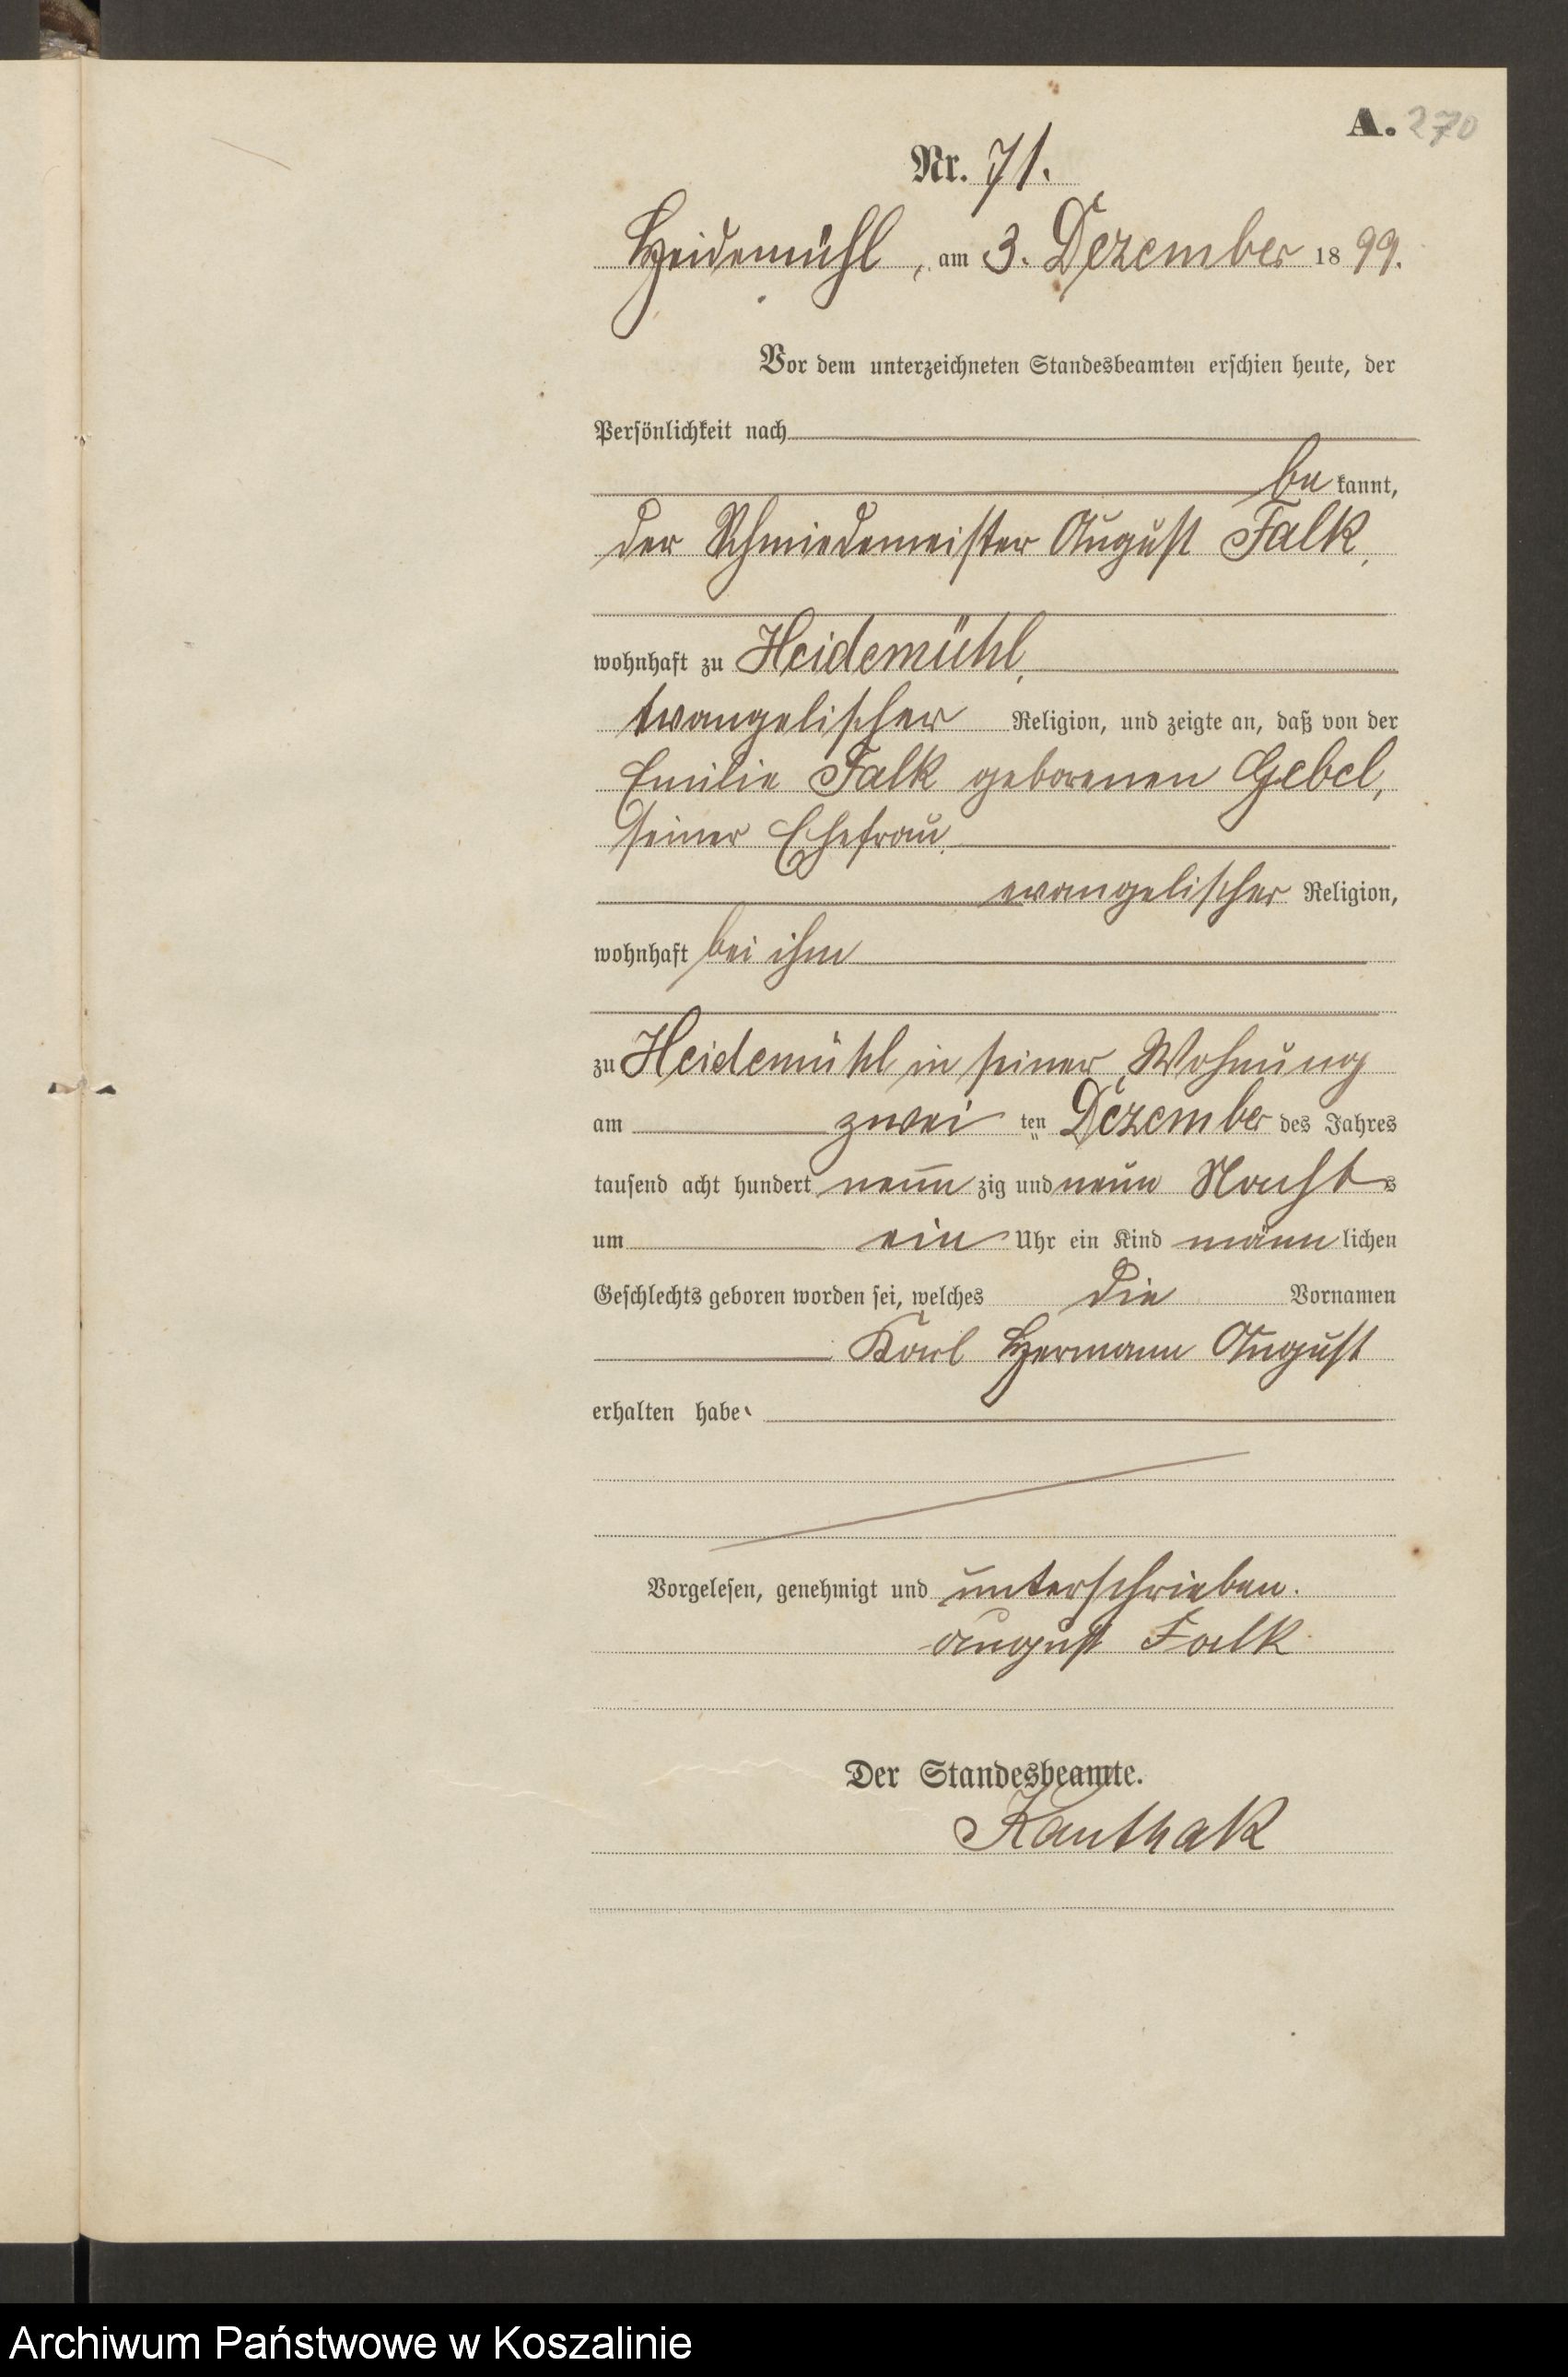 A. 270
Nr. 71.
Heidemühl, am 3. Dezember 1899.
Vor dem unterzeichneten Standesbeamten erschien heute, der
Persönlichkeit nach
be kannt,
der Schmiedemeister August Falk,
wohnhaft zu Heidemühl,
evangelischer Religion, und zeigte an, daß von der
Emilie Falk geborenen Gebel,
seiner Ehefrau,
evangelischer Religion,
wohnhaft bei ihm
zu Heidemühl in seiner Wohnung
am zwei ten Dezember des Jahres
tausend acht hundert neun zig und neun Nachts
um ein Uhr ein Kind männ lichen
Geschlechts geboren worden sei, welches die Vornamen
Karl Hermann August
erhalten habe.
Vorgelesen, genehmigt und unterschrieben.
August Falk
Der Standesbeamte.
Kauthak
Archiwum Państwowe w Koszalinie